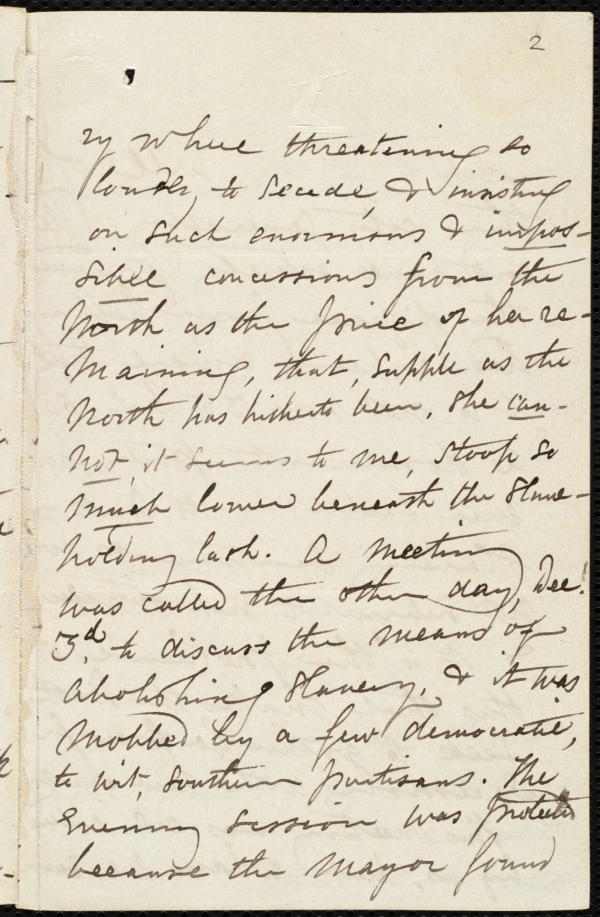 2
ry where threatening so
loudly, to secede, & insisting
on such enormous & impos-
sible concessions from the
North as the price of her re-
maining, that, supple as the
North has hitherto been, she can-
not, it seems to me, stoop so
much lower beneath the slave-
holding lash. A meeting
was called the other day, Dec.
3d, to discuss the means of
abolishing slavery, & it was
mobbed by a few democratic,
to wit, southern partisans. The
evening session was protected
because the Mayor found